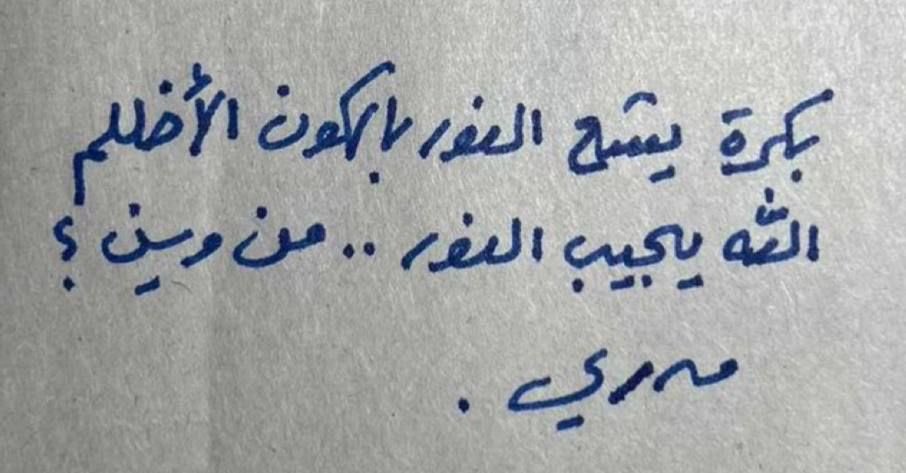 بكرة يشع النور بالكون الأظلم
الله يجيب النور .. من وين ؟
مدري .